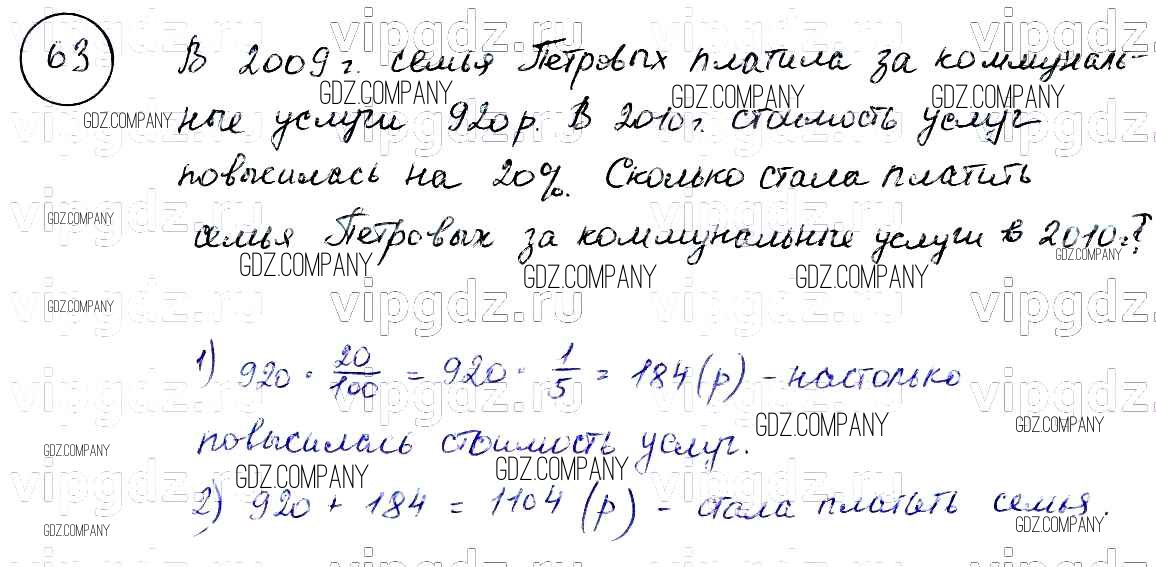 63
В 2009 г. семья Петровых платила за коммуналь-
ные услуги 920 р. В 2010 г. стоимость услуг
повысилась на 20%. Сколько стала платить
семья Петровых за коммунальные услуги в 2010 г.?
1) 920 · 20/100 = 920 · 1/5 = 184 (р) - настолько
повысилась стоимость услуг.
2) 920 + 184 = 1104 (р) - стала платить семья.
vipgdz.ru
GDZ.COMPANY